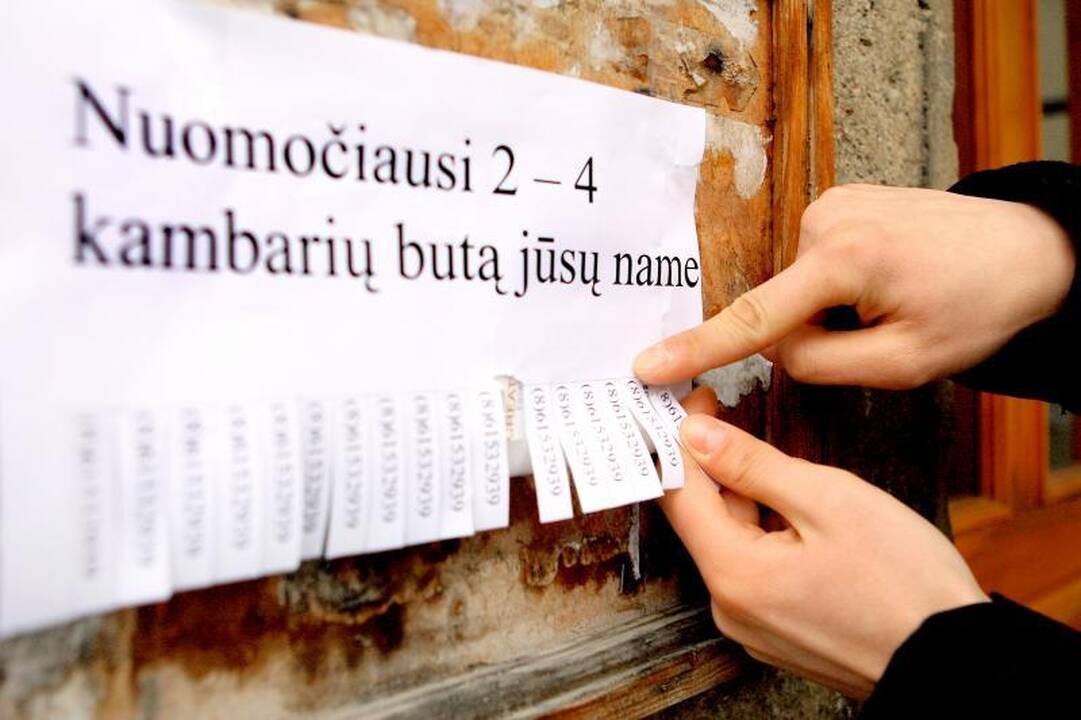 Nuomočiausi 2 – 4
kambarių butą jūsų name
(8)61532939
(8)61532939
(8)61532939
(8)61532939
(8)61532939
(8)61532939
(8)61532939
(8)61532939
(8)61532939
(8)61532939
(8)61532939
8)61